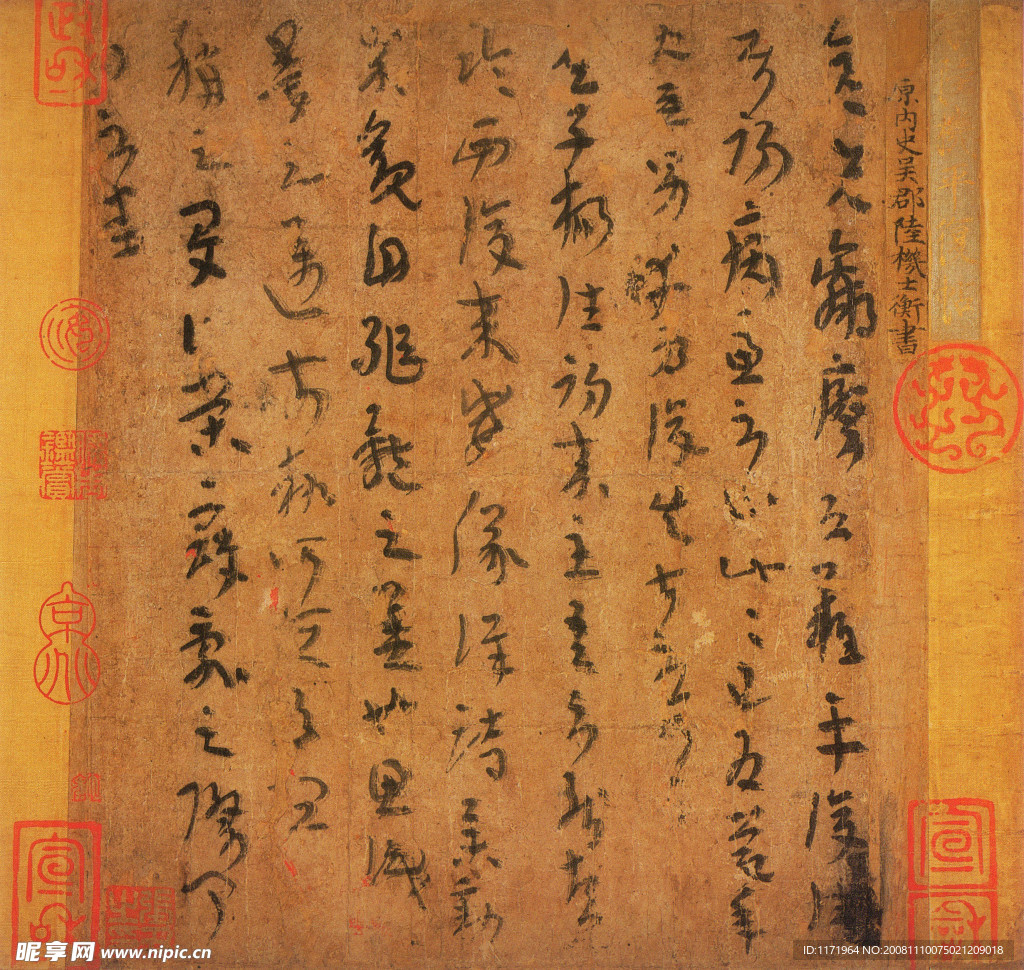 原內史吳郡陸機士衡書
彥先羸瘵恐難平復往
屬初病慮不止此此已為慶承
使唯男幸為復失前憂耳
吳子楊往初來主吾不能盡
臨西復來威儀詳跱舉動
成觀自軀體之美也思識
量之邁前執所恆有宜
稱之夏伯榮寇亂之際聞
問不悉
政和
宣和
宣和
昵享网 www.nipic.cn
ID:1171964 NO:20081110075021209018